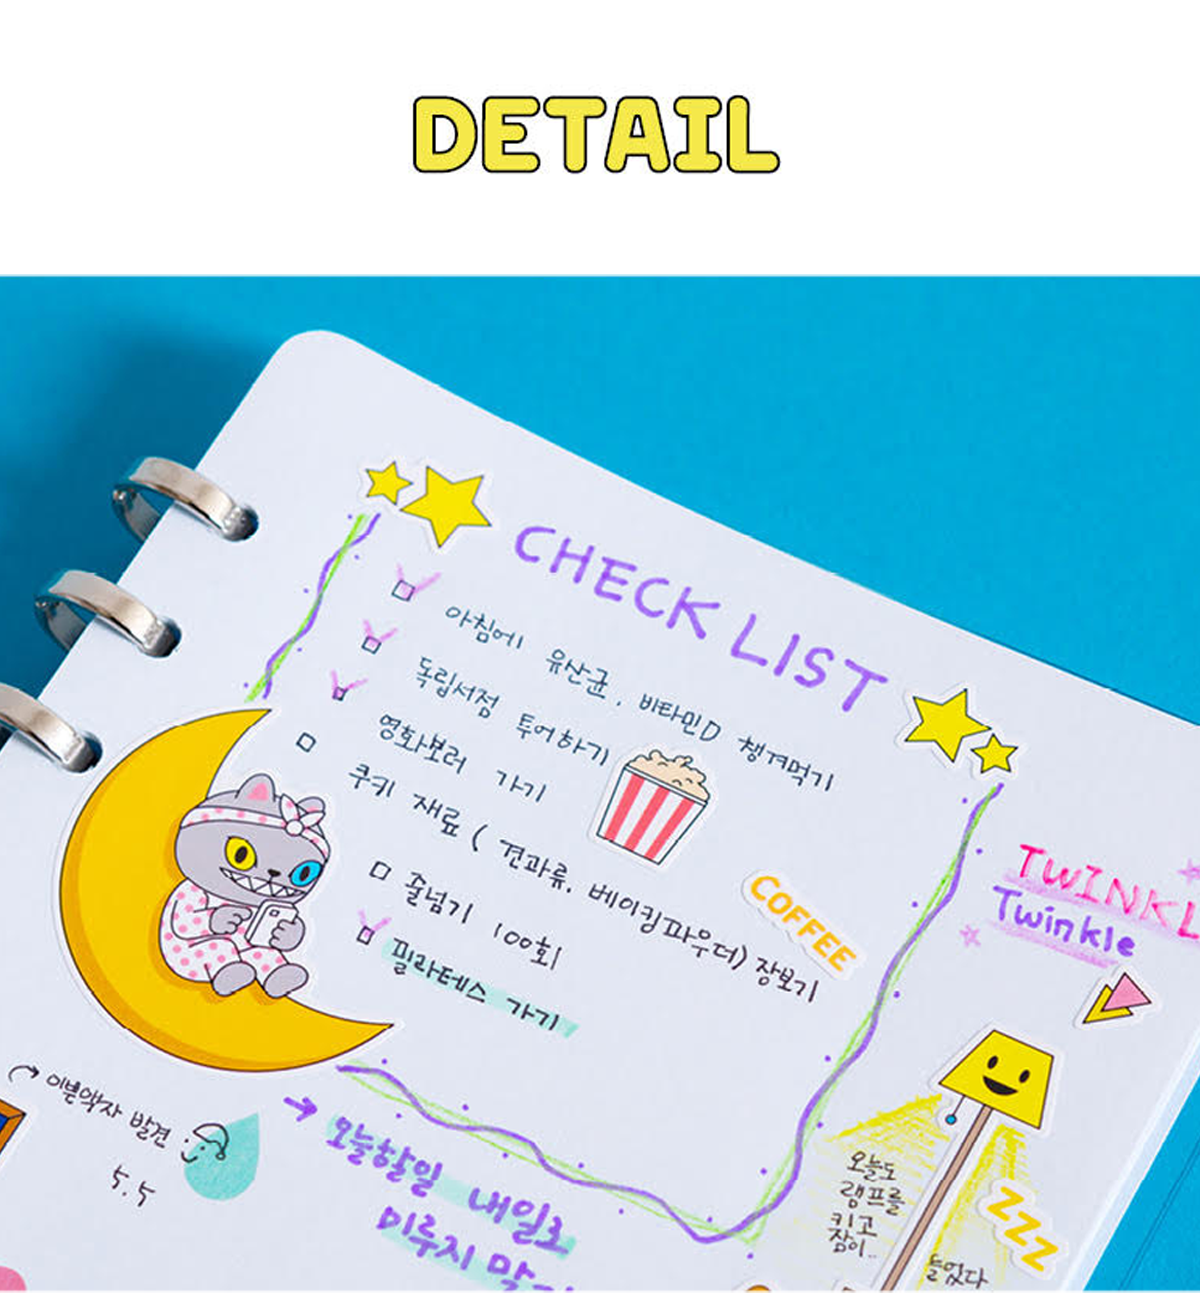 DETAIL
CHECK LIST
아침에 유산균, 비타민D 챙겨먹기
독립서점 투어하기
영화보러 가기
쿠키 재료 ( 견과류, 베이킹파우더) 장보기
줄넘기 100회
필라테스 가기
COFFEE
TWINKL
Twinkle
이쁜악자 발견
5.5
→ 오늘할일 내일로
미루지 막
오늘도
램프를
키고
잠이..
들었다
ZZZ